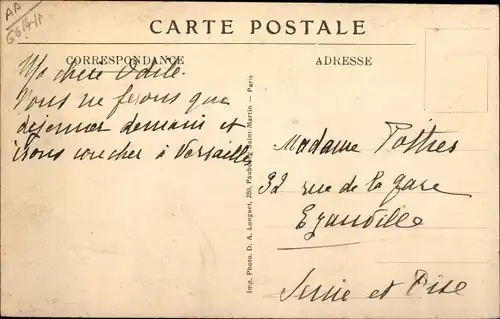 AA
CARTE POSTALE
CORRESPONDANCE
ADRESSE
Ma chère Odile.
Nous ne ferons que
déjeuner demain et
irons coucher à Versailles
Imp. Photo. D. A. Longuet, 250, Faubourg Saint-Martin - Paris
Madame Pothes
32 rue de la gare
Ezanville
Seine et Oise